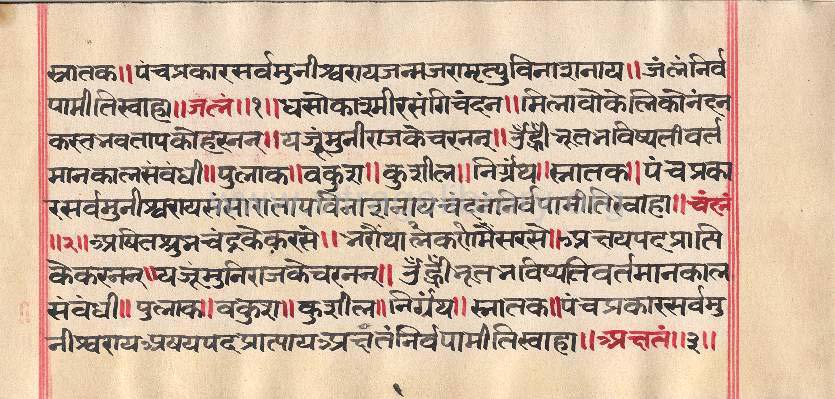 स्नातक॥पंचप्रकारसर्वमुनीश्वरायजन्मजरामृत्युविनाशनाय॥जंलंनिर्व
पामीतिस्वाहा॥जलं॥१॥घसौकाश्मीरसंगिचंदन॥मिलावौकेलिकौनंदन
करतभवतापकौहरनन्॥यजूंमुनीराजकेचरनन्॥ॐह्रीँभूतभविष्यतीवर्त
मानकालसंबंधी॥पुलाक॥वकुश॥कुशील॥निर्ग्रंथ॥स्नातक॥पंचप्रका
रसर्वमुनीश्वरायसंसारातापविनाशनायचंदनंनिर्वपामीतिस्वाहा॥चंदनं
॥२॥अषितशुभचंद्रकैकरसे॥भरौंथालकरोमैसरसे॥अक्षयपदप्राति
कैकरनन्॥यजूंमुनिराजकेचरनन्॥ॐह्रीँभूतभविष्यतिवर्तमानकाल
संबंधी॥पुलाक॥वकुश॥कुशील॥निर्ग्रंथ॥स्नातक॥पंचप्रकारसर्वमु
नीश्वरायअषयपदप्राप्तायअक्षतंनिर्वपामीतिस्वाहा॥अक्षतं॥३॥